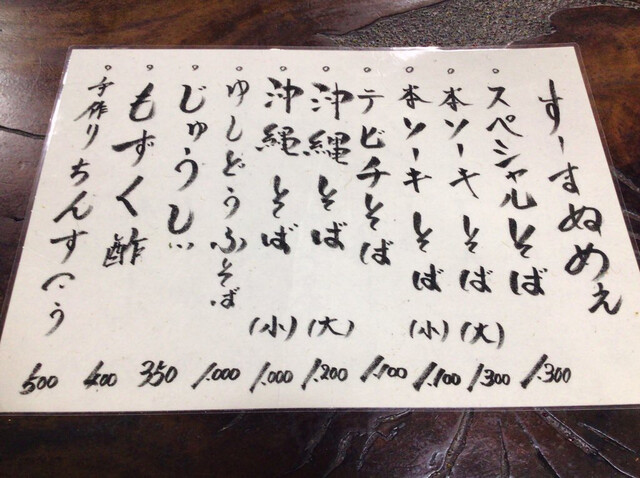 すーまぬめぇ
。スペシャルそば 1.300
。本ソーキそば(大) 1.300
。本ソーキそば(小) 1.100
。テビチそば 1.100
。沖縄そば(大) 1.200
。沖縄そば(小) 1.000
。ゆしどうふそば 1.000
。じゅうしぃ 350
。もずく酢 400
。手作りちんすこう 500